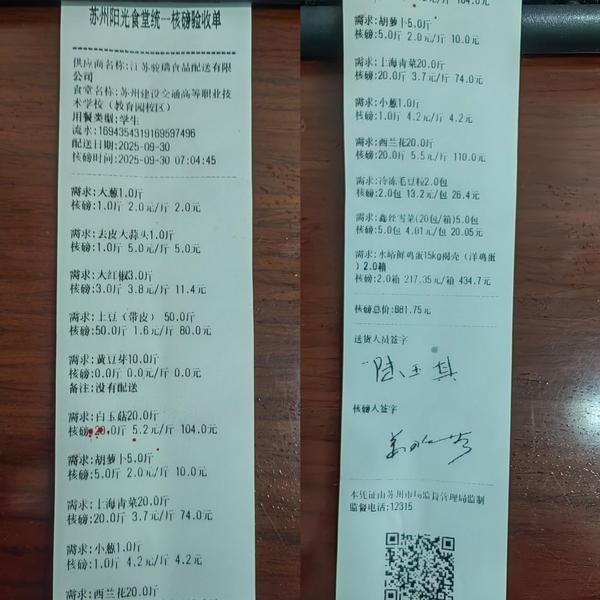 苏州阳光食堂统一核磅验收单
供应商名称:江苏骏瑞食品配送有限
公司
食堂名称:苏州建设交通高等职业技
术学校（教育园校区）
用餐类型:学生
流水:1694354319169597496
配送日期:2025-09-30
核磅时间:2025-09-30 07:04:45
需求:大葱1.0斤
核磅:1.0斤 2.0元/斤 2.0元
需求:去皮大蒜头1.0斤
核磅:1.0斤 5.0元/斤 5.0元
需求:大红椒3.0斤
核磅:3.0斤 3.8元/斤 11.4元
需求:土豆（带皮） 50.0斤
核磅:50.0斤 1.6元/斤 80.0元
需求:黄豆芽10.0斤
核磅:0.0斤 0.0元/斤 0.0元
备注:没有配送
需求:白玉菇20.0斤
核磅:20.0斤 5.2元/斤 104.0元
需求:胡萝卜5.0斤
核磅:5.0斤 2.0元/斤 10.0元
需求:上海青菜20.0斤
核磅:20.0斤 3.7元/斤 74.0元
需求:小葱1.0斤
核磅:1.0斤 4.2元/斤 4.2元
需求:西兰花20.0斤
需求:胡萝卜5.0斤
核磅:5.0斤 2.0元/斤 10.0元
需求:上海青菜20.0斤
核磅:20.0斤 3.7元/斤 74.0元
需求:小葱1.0斤
核磅:1.0斤 4.2元/斤 4.2元
需求:西兰花20.0斤
核磅:20.0斤 5.5元/斤 110.0元
需求:冷冻毛豆籽2.0包
核磅:2.0包 13.2元/包 26.4元
需求:鑫经雪菜(20包/箱)5.0包
核磅:5.0包 4.01元/包 20.05元
需求:水峪鲜鸡蛋15kg褐壳（洋鸡蛋
）2.0箱
核磅:2.0箱 217.35元/箱 434.7元
核磅总价:881.75元
送货人员签字
核磅人签字
本凭证由苏州市场监督管理局监制
监督电话:12315